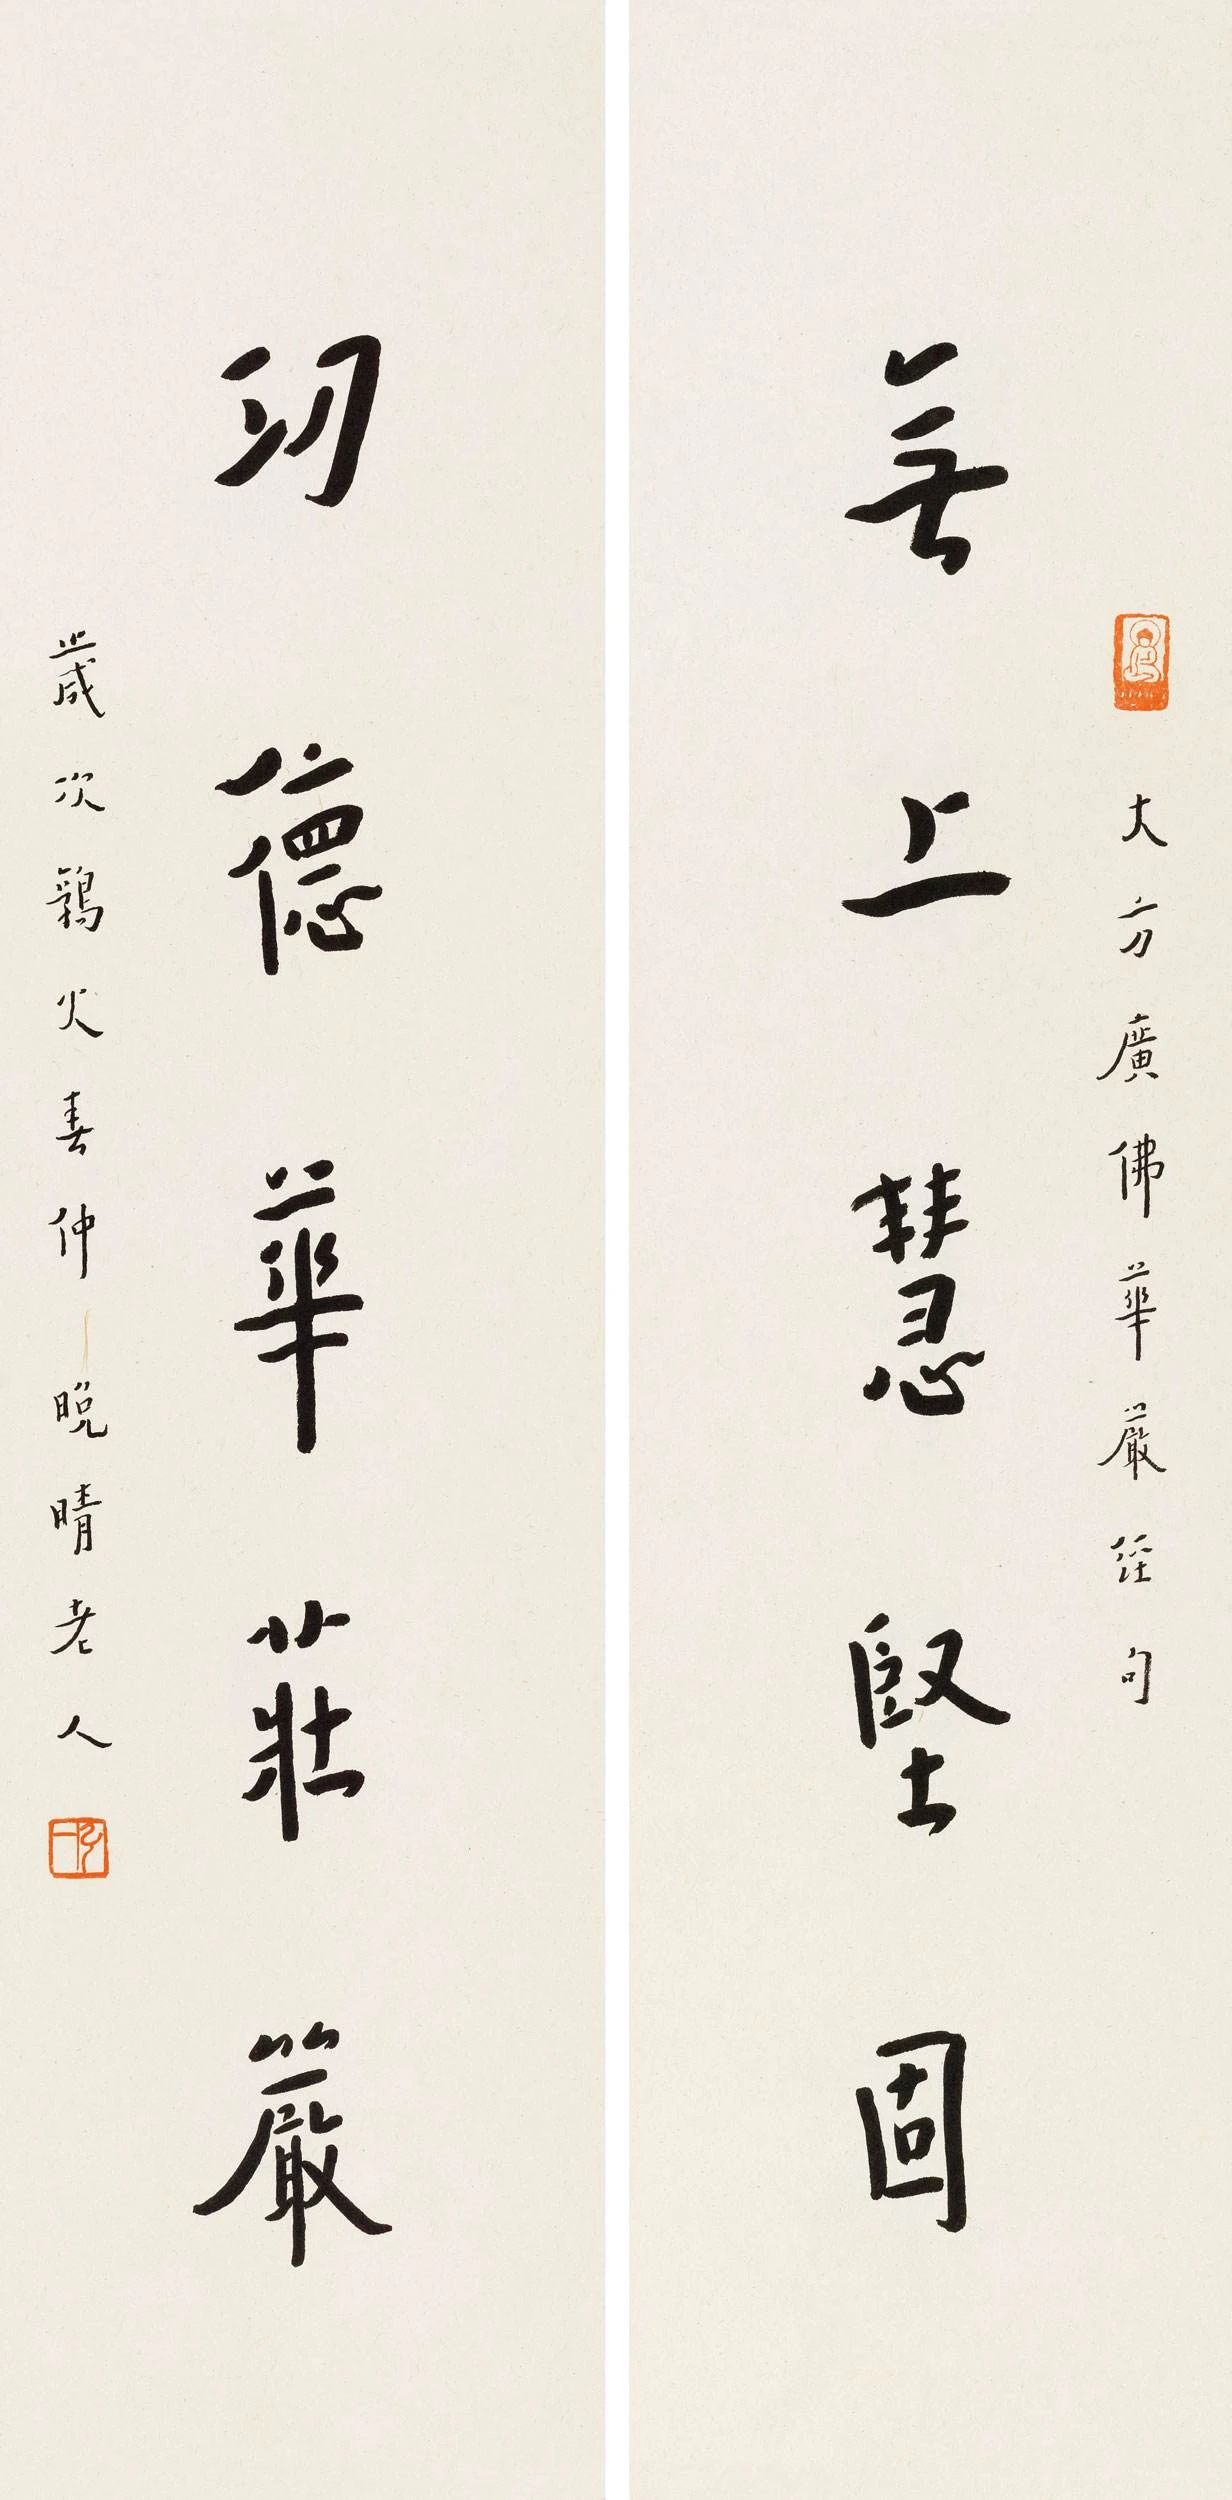 大方廣佛華嚴經句
無上慧堅固
功德華莊嚴
歲次鶉火春仲晚晴老人
弘一